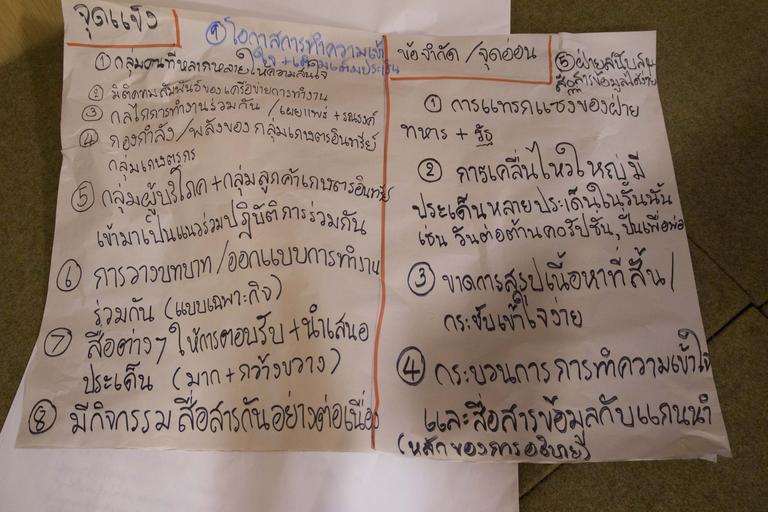 จุดแข็ง
① กลุ่มคนที่หลากหลายให้ความสนใจ
② มิติความสัมพันธ์ของเครือข่ายการทำงาน
③ กลไกการทำงานร่วมกัน / เผยแพร่ + รณรงค์
④ กองกำลัง / พลังของกลุ่มเกษตรอินทรีย์
กลุ่มเกษตรกร
⑤ กลุ่มผู้บริโภค + กลุ่มลูกค้าเกษตรอินทรีย์
เข้ามาเป็นแนวร่วมปฏิบัติการร่วมกัน
⑥ การวางบทบาท / ออกแบบการทำงาน
ร่วมกัน (แบบเฉพาะกิจ)
⑦ สื่อต่างๆ ให้การตอบรับ + นำเสนอ
ประเด็น (มาก + กว้างขวาง)
⑧ มีกิจกรรมสื่อสารกันอย่างต่อเนื่อง
⑨ โอกาสการทำความเข้า
ใจ +
ข้อจำกัด / จุดอ่อน
① การแทรกแซงของฝ่าย
ทหาร + รัฐ
② การเคลื่อนไหวใหญ่มี
ประเด็นหลายประเด็นในวันนั้น
เช่น วันต่อต้านคอรัปชั่น, ปั่นเพื่อพ่อ
③ ขาดการสรุปเนื้อหาที่สั้น /
กระชับเข้าใจง่าย
④ กระบวนการการทำความเข้าใจ
และสื่อสารข้อมูลกับแกนนำ
(หลักของการอธิบาย)
⑤ ฝ่ายสนับสนุน
ข้อมูลได้ง่าย